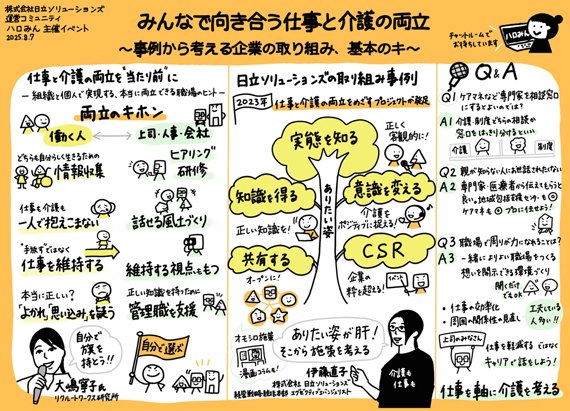 株式会社日立ソリューションズ
運営コミュニティ
ハロみん 主催イベント
2025.8.7
みんなで向き合う仕事と介護の両立
～事例から考える企業の取り組み、基本のキ～
チャットルームで
お待ちしています
ハロみん
仕事と介護の両立を"当たり前"に
－組織と個人で実現する、本当に両立できる職場のヒント－
両立のキホン
働く人
上司・人事・会社
どちらも自分らしく生きるための
情報収集
ヒアリング
研修
仕事も介護も
一人で抱えこまない
話せる風土づくり
"手放す"ではなく
仕事を維持する
維持する視点をもつ
本当に正しい？
「よかれ」「思い込み」を疑う
正しい知識を持つために
管理職を支援
自分で
旗を
持とう!!
自分で選ぶ
大嶋寧子氏
リクルートワークス研究所
日立ソリューションズの取り組み事例
2023年
仕事と介護の両立をめざすプロジェクトが発足
実態を知る
正しく
客観的に!
知識を得る
正しい知識を!
ありたい姿
意識を変える
介護を
ポジティブに捉える!
共有する
オープンに!
CSR
企業の
枠を超える!
イベント
オモシロ施策
漫画コラムも!
ありたい姿が肝!
そこから施策を考える
伊藤直子
株式会社 日立ソリューションズ
経営戦略統括本部 エグゼクティブエバンジェリスト
介護も
仕事も
Q&A
Q1 ケアマネなど専門家を相談窓口
にするとよいのでは？
A1 介護・制度どちらの相談か
窓口をはっきり分けるといい
介護
制度
Q2 親が知らない人にお世話されたがらない
A2 専門家・医療者から伝えてもらうと
良い。地域包括支援センターも
ケアマネもプロに任せよう!
Q3 職場で周りが力になれることは？
A3 一緒によりよい職場をつくる
想いを開示できる環境づくり
聞くだけ
でもOK
・仕事の効率化
・周囲の関係性の見直し
工夫している
人多い!!
上司のみなさん!
仕事を軽減するではなく
キャリアで話をしよう!
仕事を軸に介護を考える